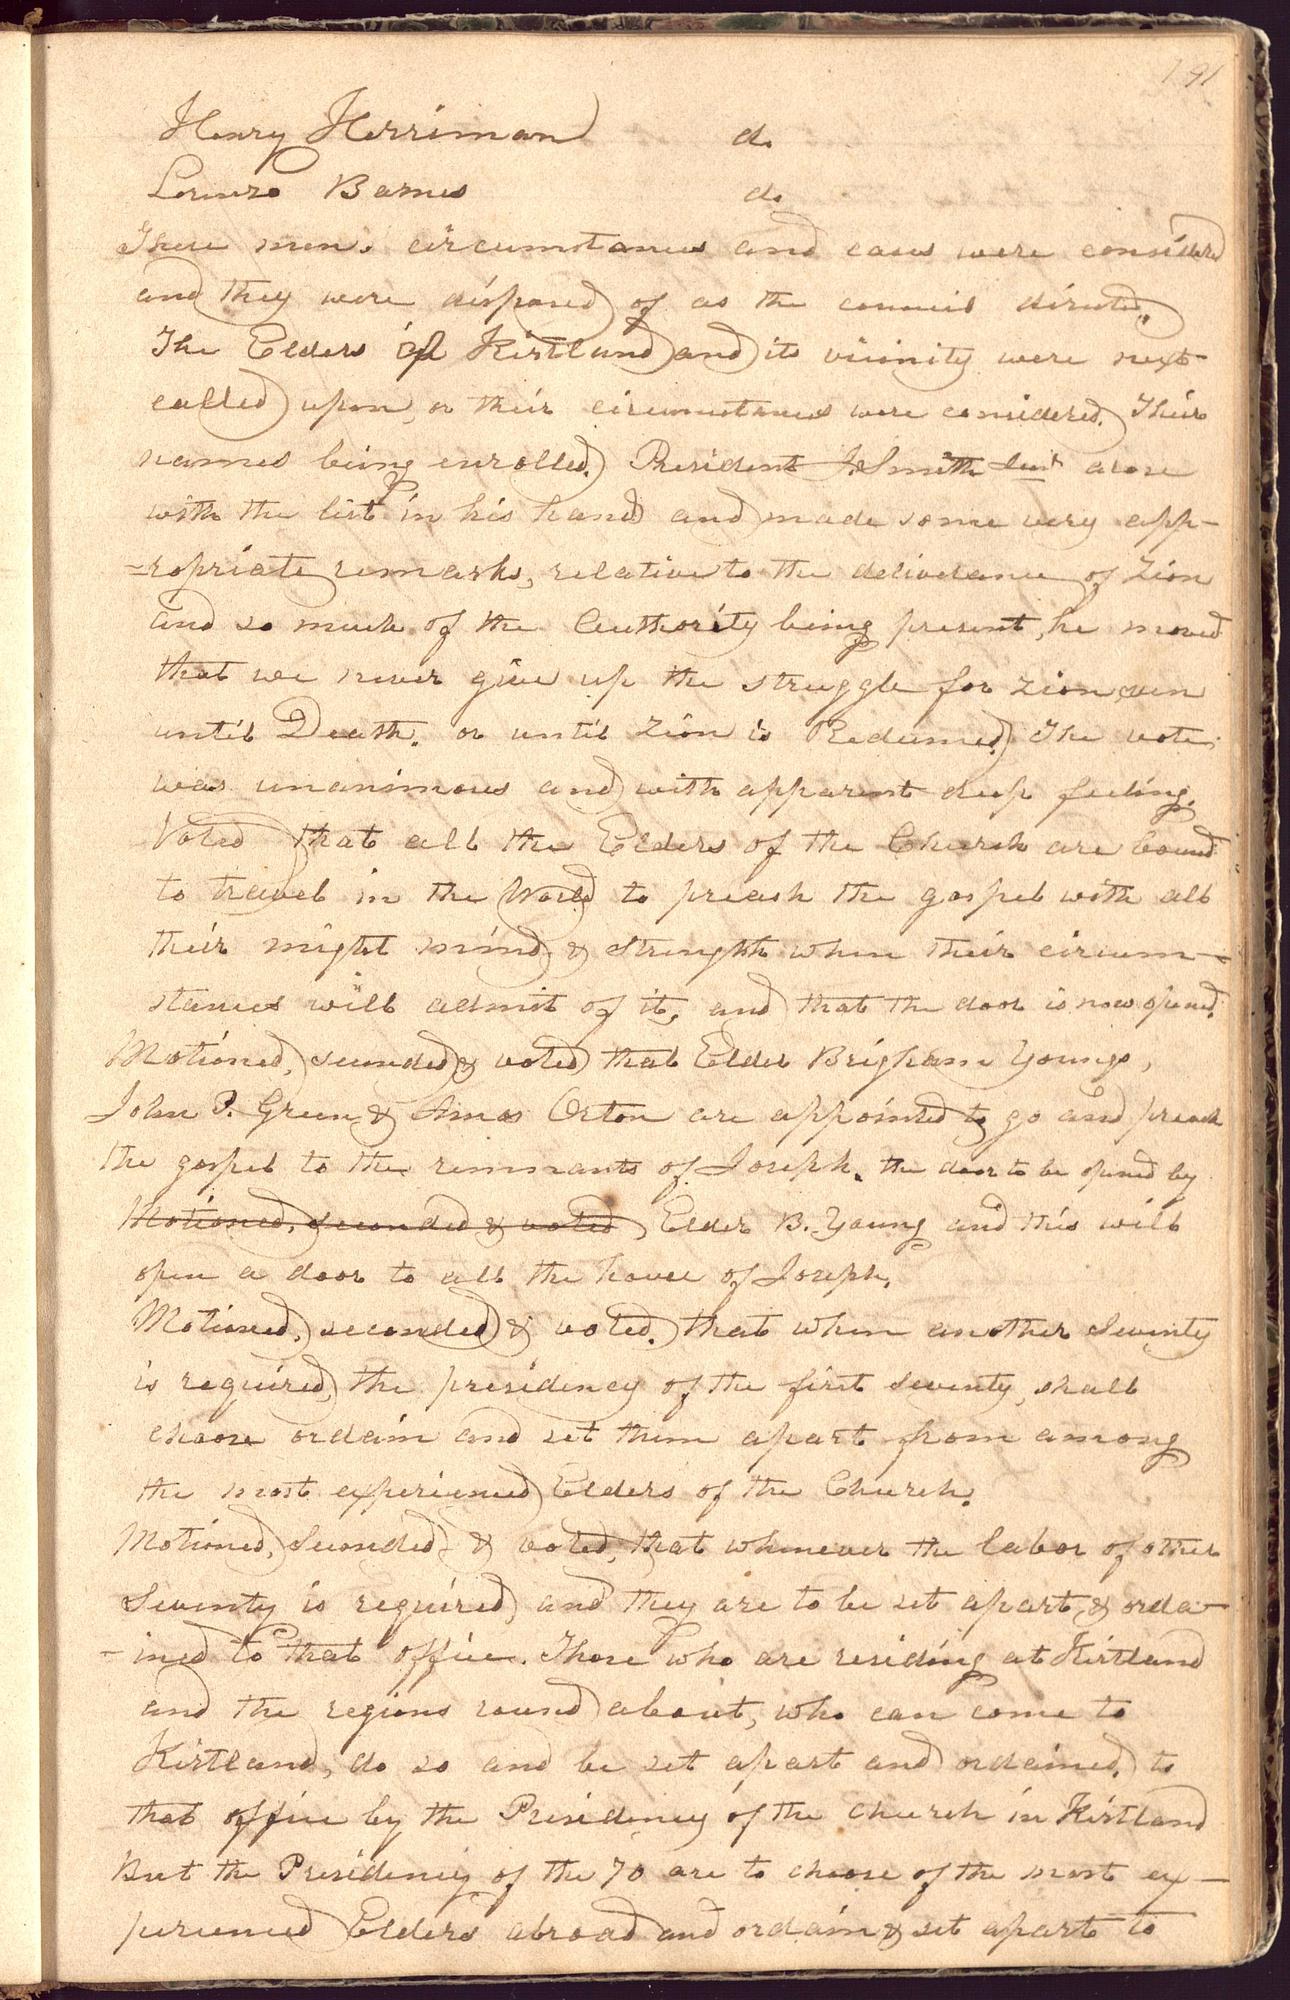 191
Henry Herriman do
Lorenzo Barnes do
These men's circumstances and cases were considered
and they were disposed of as the council directed.
The Elders of Kirtland and its vicinity were next
called upon, or their circumstances were considered. Their
names being enrolled. President J. Smith Jun^r arose
with the list in his hand and made some very app-
=ropriate remarks, relative to the deliverance of Zion
and so much of the Authority being present, he moved
that we never give up the struggle for Zion, even
until Death. or until Zion is Redeemed. The vote
was unanimous and with apparent deep feeling.
Voted that all the Elders of the Church are bound
to travel in the World to preach the gospel with all
their might mind & strength when their circum-
stances will admit of it, and that the door is now opened.
Motioned, seconded & voted that Elder Brigham Young,
John P. Green & Amos Orton are appointed to go and preach
the gospel to the remnants of Joseph. the door to be opened by
Motioned, seconded & voted Elder B. Young and this will
open a door to all the house of Joseph.
Motioned, seconded & voted. that when another Seventy
is required, the presidency of the first seventy, shall
choose ordain and set them apart from among
the most experienced Elders of the Church.
Motioned, Seconded & voted, that whenever the labor of other
Seventy is required, and they are to be set apart, & orda-
-ined to that office. Those who are residing at Kirtland
and the regions round about, who can come to
Kirtland, do so and be set apart and ordained, to
that office by the Presidency of the church in Kirtland
But the Presidency of the 70 are to choose of the most ex-
perienced Elders abroad and ordain & set apart to